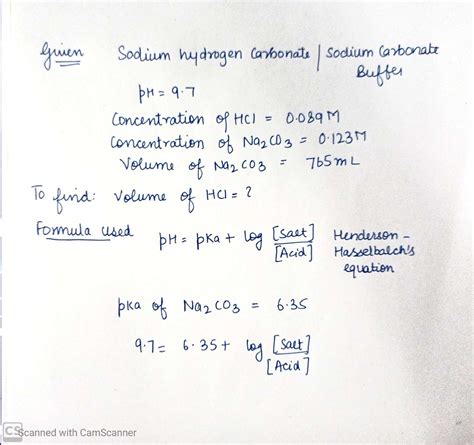 Given Sodium hydrogen Carbonate / Sodium Carbonate
Buffer
pH = 9.7
Concentration of HCl = 0.089 M
Concentration of Na2CO3 = 0.123 M
Volume of Na2CO3 = 765 mL
To find: Volume of HCl = ?
Formula used pH = pKa + log [Salt]/[Acid] Henderson -
Hasselbalch's
equation
pka of Na2CO3 = 6.35
9.7 = 6.35 + log [Salt]/[Acid]
CS Scanned with CamScanner